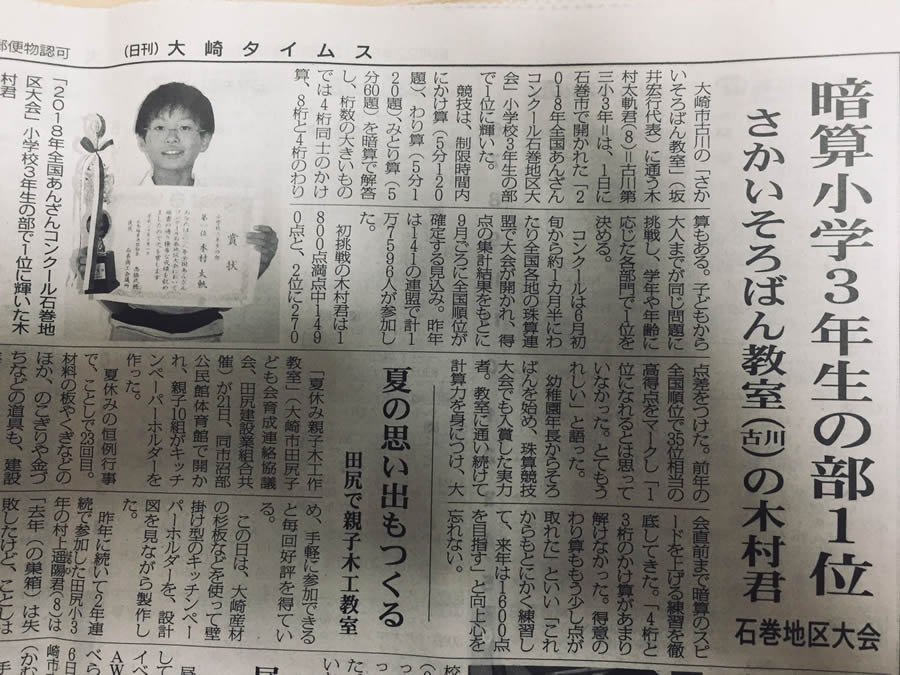 郵便物認可
(日刊) 大崎タイムス
暗算小学3年生の部1位
さかいそろばん教室(古川)の木村君
石巻地区大会
大崎市古川の「さか
いそろばん教室」(坂
井宏行代表)に通う木
村太軌君(8)=古川第
三小3年=は、1日に
石巻市で開かれた「2
018年全国あんざん
コンクール石巻地区大
会」小学校3年生の部
で1位に輝いた。
競技は、制限時間内
にかけ算(5分120
題)、わり算(5分1
20題)、みとり算(5
分60題)を暗算で解答
し、桁数の大きいもの
では4桁同士のかけ
算、8桁と4桁のわり
算もある。子どもから
大人までが同じ問題に
挑戦し、学年や年齢に
応じた各部門で1位を
決める。
コンクールは6月初
旬から約1カ月半にわ
たり全国各地の珠算連
盟で大会が開かれ、得
点の集計結果をもとに
9月ごろに全国順位が
確定する見込み。昨年
は141の連盟で計1
万7596人が参加し
た。
初挑戦の木村君は1
800点満点中149
0点と、2位に270
点差をつけた。前年の
全国順位で35位相当の
高得点をマークし「1
位になれるとは思って
いなかった。とてもう
れしい」と語った。
幼稚園年長からそろ
ばんを始め、珠算競技
大会でも入賞した実力
者。教室に通い続けて
計算力を身につけ、大
会直前まで暗算のスピ
ードを上げる練習を徹
底してきた。「4桁と
3桁のかけ算があまり
解けなかった。得意の
わり算ももう少し点が
取れた」といい「これ
からもとにかく練習し
て、来年は1600点
を目指す」と向上心を
忘れない。
賞状
「2018年全国あんざんコンクール石巻地
区大会」小学校3年生の部で1位に輝いた木
村君
夏の思い出もつくる
田尻で親子木工教室
「夏休み親子木工作
教室」(大崎市田尻子
ども会育成連絡協議
会、田尻建設業組合共
催)が21日、同市沼部
公民館体育館で開か
れ、親子10組がキッチ
ンペーパーホルダーを
作った。
夏休みの恒例行事
で、ことしで23回目。
材料の板やくぎなどの
ほか、のこぎりや金づ
ちなどの道具も、建設
め、手軽に参加できる
と毎回好評を得てい
る。
この日は、大崎産材
の杉板などを使って壁
掛け型のキッチンペー
パーホルダーを、設計
図を見ながら製作し
た。
昨年に続いて2年連
続で参加した田尻小3
年の村上遥陽君(8)は
「去年(の巣箱)は失
敗したけど、ことしは